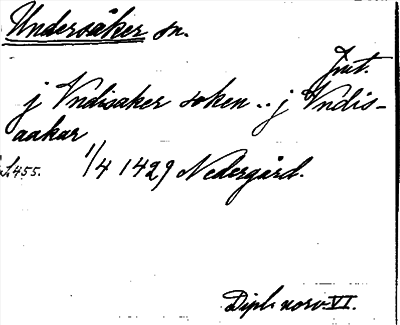 Undersåker sn.
Jmt.
j Vndisaker soken .. j Vndis-
aakar
s. 455. 1/4 1429 Nedergård.
Dipl. norv. VI.